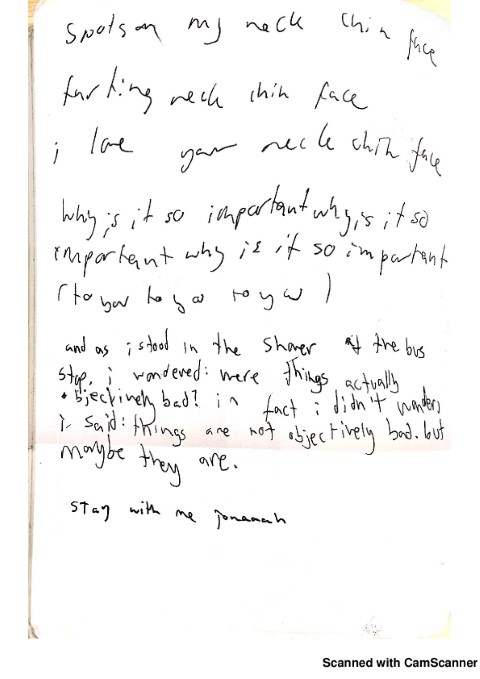 Spots on my neck chin face
farting neck chin face
i love your neck chin face
Why is it so important why is it so
important why is it so important
(to you to you to you)
and as i stood in the shower at the bus
stop, i wondered: were things actually
objectively bad? in fact i didn't wonder,
i said: things are not objectively bad. but
maybe they are.
stay with me
Scanned with CamScanner